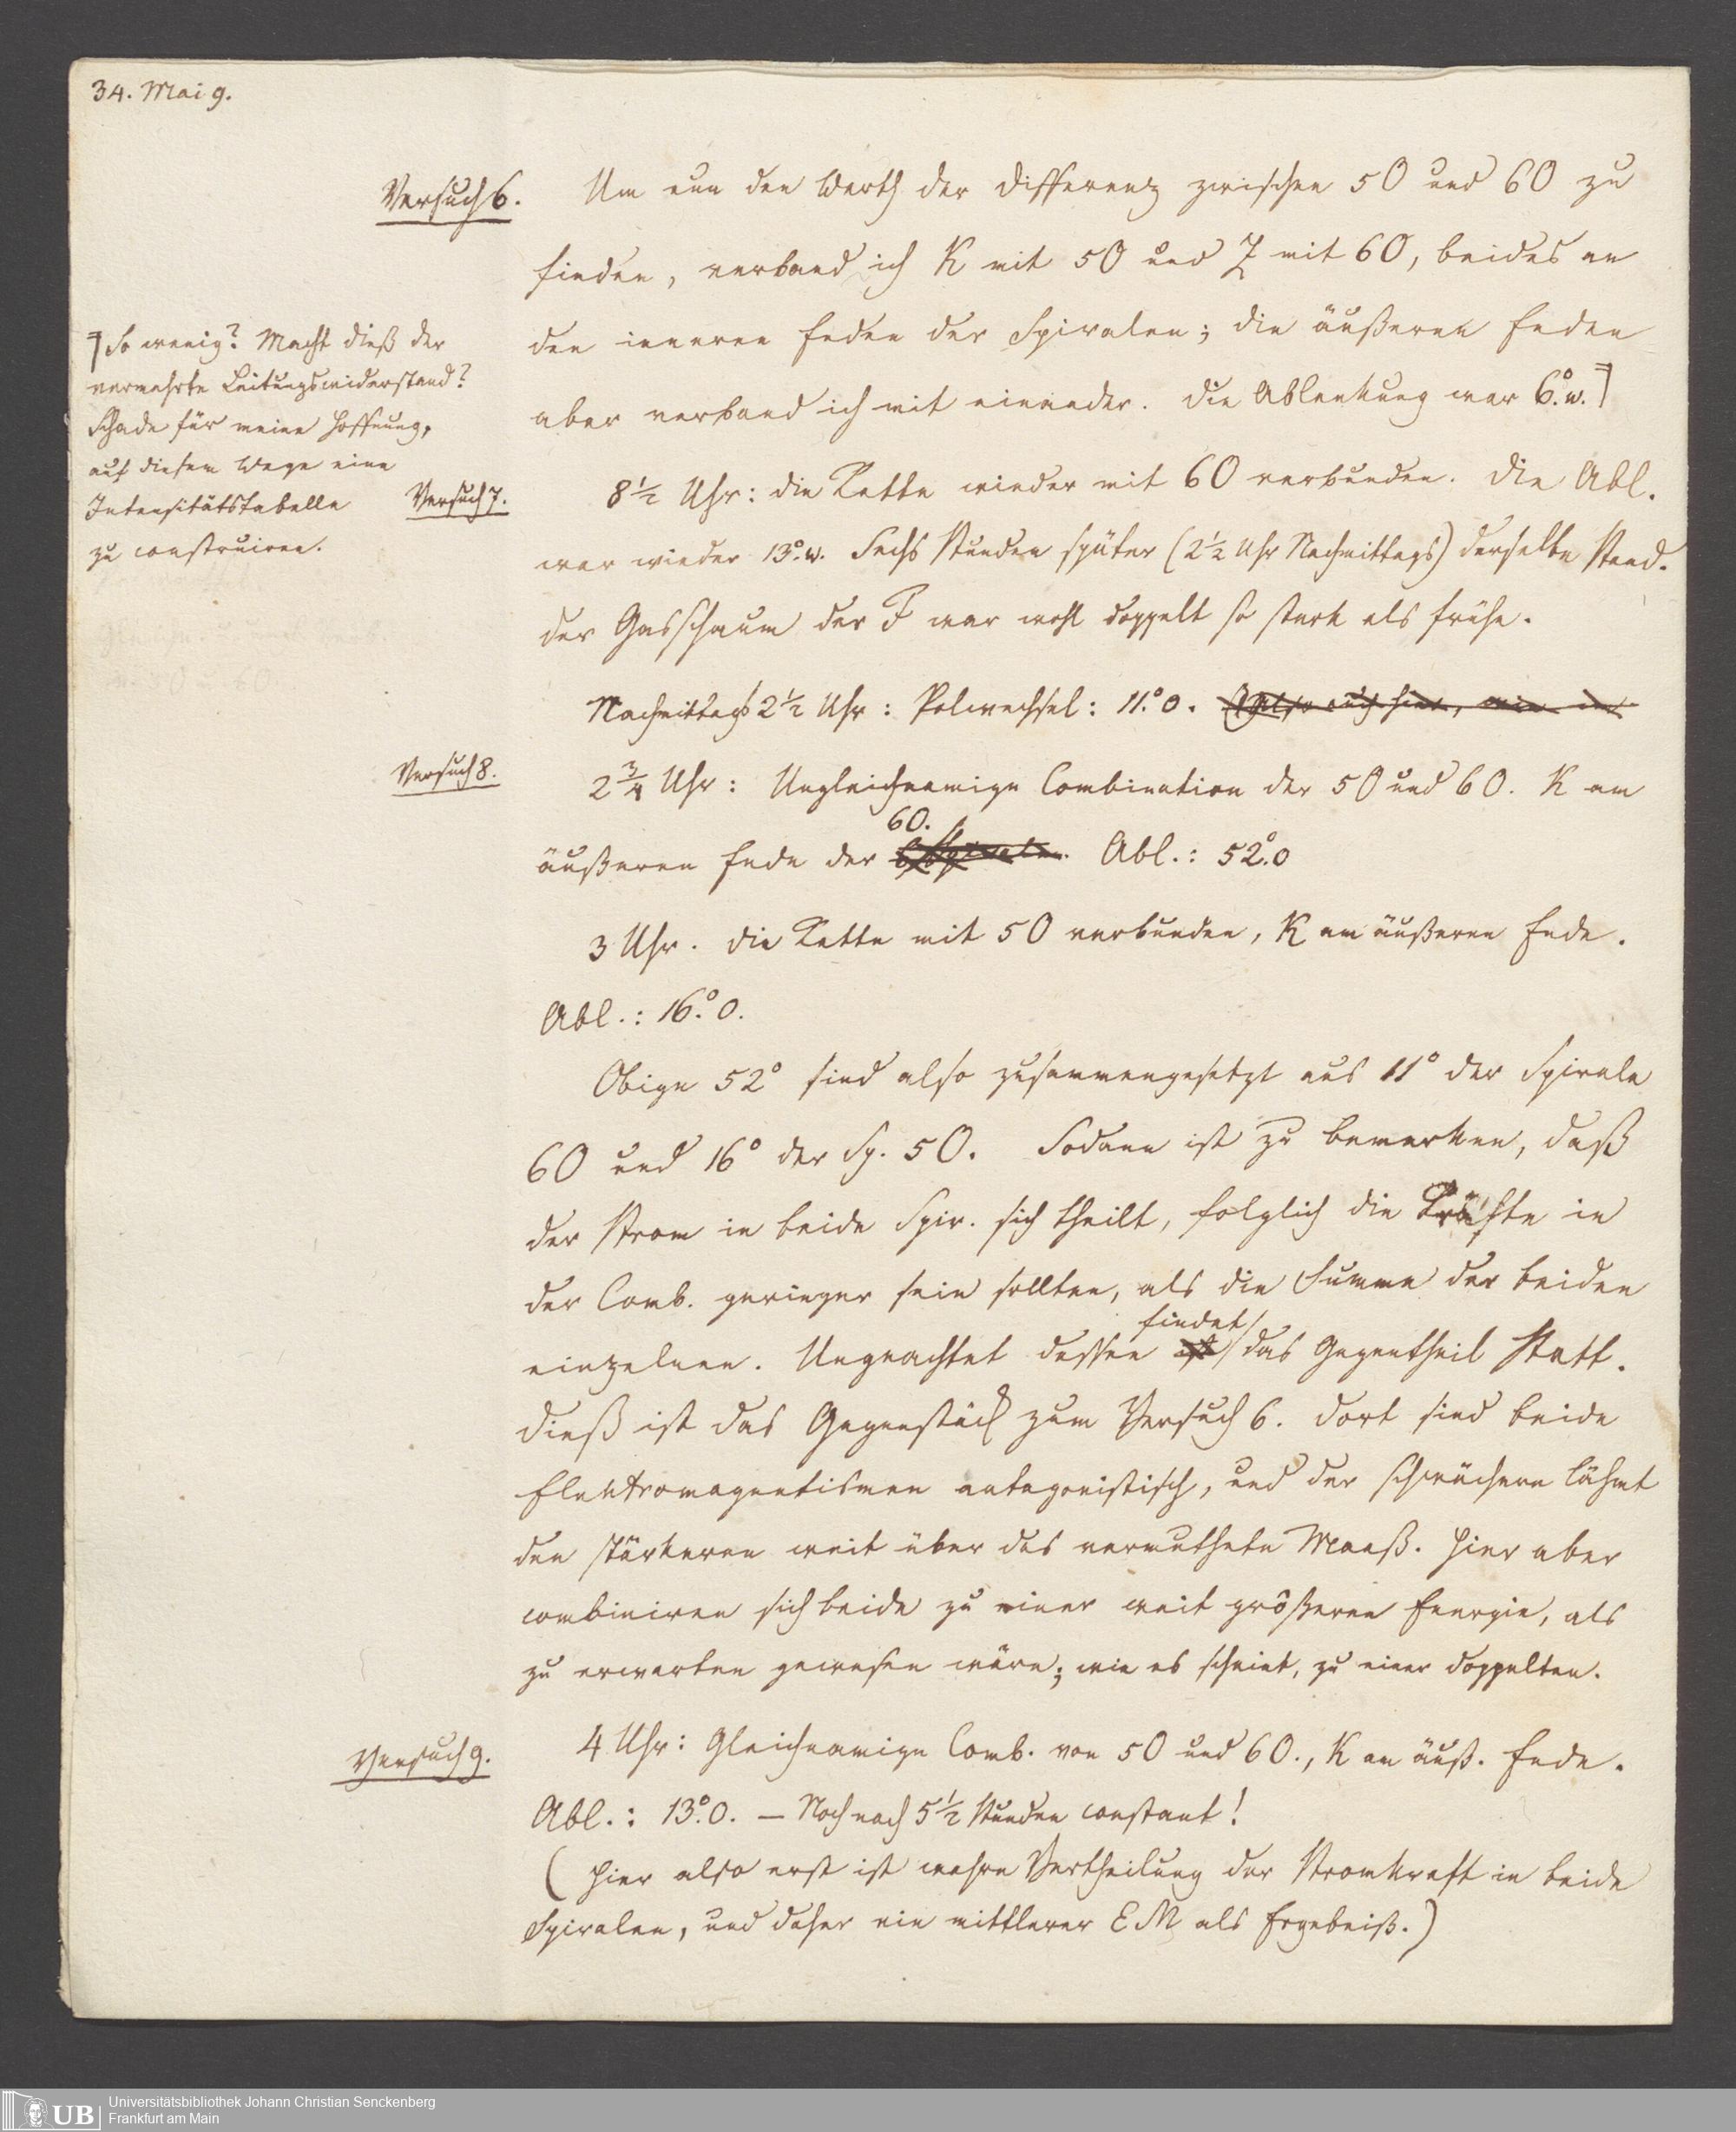 34. Mai 9.
Versuch 6.
Um nun den Werth der Differenz zwischen 50 und 60 zu
finden, verband ich K mit 50 und Z mit 60, beides an
den inneren Enden der Spiralen; die äußeren Enden
aber verband ich mit einander. Die Ablenkung war 6°.w.
So wenig? Macht dieß der
vermehrte Leitungswiderstand?
Schade für meine Hoffnung,
auf diesem Wege eine
Intensitätstabelle
zu construiren.
Versuch 7.
8½ Uhr: die Kette wieder mit 60 verbunden. Die Abl.
war wieder 13°.w. Sechs Stunden später (2½ Uhr Nachmittags) derselbe Stand.
Der Gasschaum der F war wohl doppelt so stark als frühe.
Nachmittags 2½ Uhr: Polwechsel: 11.°O. (Also auch hier, wie im
Versuch 8.
2¾ Uhr: Ungleichnamige Combination der 50 und 60. K am
60.
äußeren Ende der Spirale. Abl.: 52°.O
3 Uhr. Die Kette mit 50 verbunden, K am äußeren Ende.
Abl.: 16.°O.
Obige 52° sind also zusammengesetzt aus 11° der Spirale
60 und 16° der Sp. 50. Sodann ist zu bemerken, daß
der Strom in beide Spir. sich theilt, folglich die Kräfte in
der Comb. geringer sein sollten, als die Summe der beiden
findet
einzelnen. Ungeachtet dessen ist das Gegentheil Statt.
Dieß ist das Gegenstück zum Versuch 6. Dort sind beide
Elektromagnetismen antagonistisch, und der schwächere lähmt
den stärkeren weit über das vermuthete Maaß. Hier aber
combiniren sich beide zu einer weit größeren Energie, als
zu erwarten gewesen wäre; wie es scheint, zu einer doppelten.
Versuch 9.
4 Uhr: Gleichnamige Comb. von 50 und 60., K am äuß. Ende.
Abl.: 13.°O. — Noch nach 5½ Stunden constant!
(Hier also erst ist wahre Vertheilung der Stromkraft in beide
Spiralen, und daher ein mittlerer EM als Ergebniß.)
UB
Universitätsbibliothek Johann Christian Senckenberg
Frankfurt am Main